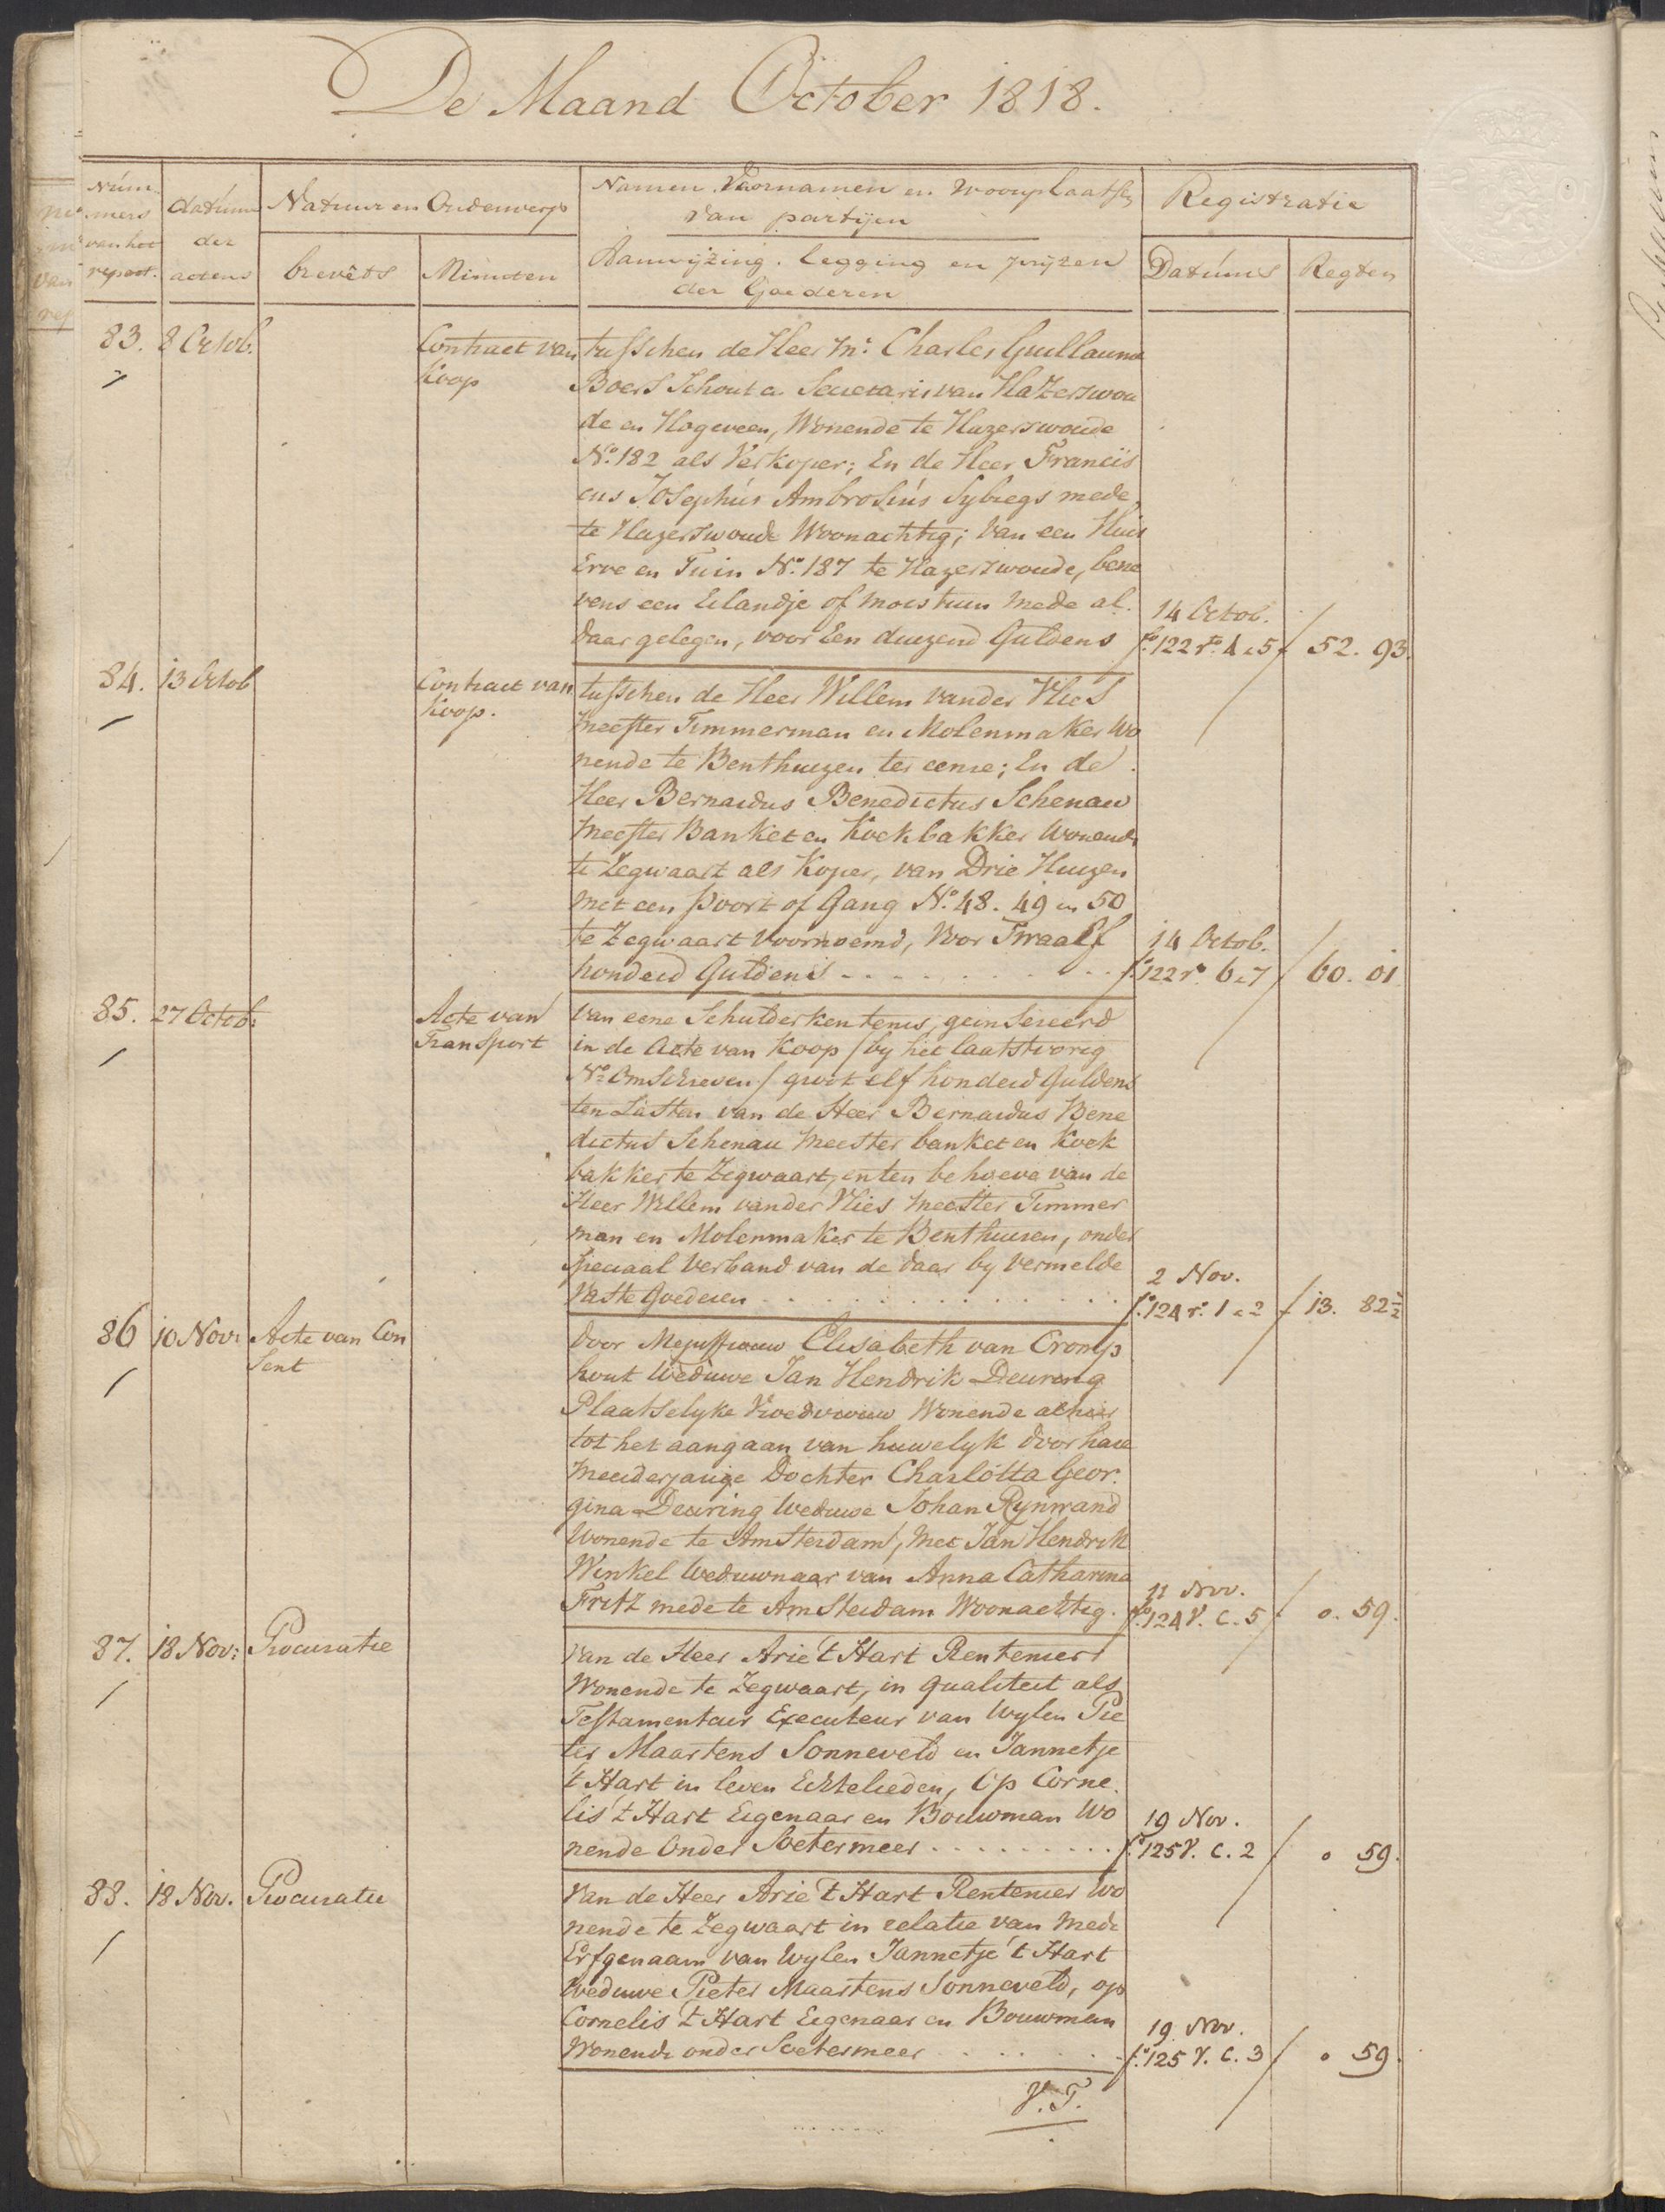 De Maand October 1818.
Num
mers
van het
repert.
datum
der
actens
Natuur en Onderwerp
brevets
Minuten
Namen Voornamen en Woonplaatse
van partijen
Aanwijzing. legging en prijzen
der Goederen
Registratie
Datums
Regten
83. 8 Octob.
Contract van
Koop
tusschen de Heer Mr. Charles Guillaume
Boers Schout en Secretaris van Hazerswou
de en Hogeveen, Wonende te Hazerswoude
No. 182 als Verkoper; En de Heer Francis
cus Josephus Ambrosius Sybregs mede
te Hazerswoude Woonachtig; van een Huis
Erve en Tuin No. 187 te Hazerswoude, bene
vens een Eilandje of moestuin mede al
daar gelegen, voor Een duizend Guldens
14 Octob.
fo. 122 ro. 4 & 5
52. 93.
84. 13 Octob
Contract van
Koop.
tusschen de Heer Willem vander Vlies
Meester Timmerman en Molenmaker Wo
nende te Benthuizen ter eenre; En de
Heer Bernardus Benedictus Schenau
Meester Banket en Koekbakker Wonende
te Zegwaart als Koper, van Drie Huizen
met een Poort of Gang No. 48. 49 en 50
te Zegwaart voornoemd, voor Twaalf
honderd Guldens
14 Octob.
fo. 122 ro. 6 & 7
60. 01
85. 27 Octob:
Acte van
Transport
van eene Schulderkentenis, geinsereerd
in de Acte van Koop / by het laatstvorig
No. Omschreven / groot elf honderd Guldens
ten Laste van de Heer Bernardus Bene
dictus Schenau Meester banket en Koek
bakker te Zegwaart, en ten behoeve van de
Heer Willem vander Vlies Meester Timmer
man en Molenmaker te Benthuisen, onder
Speciaal Verband van de daar by vermelde
Vaste Goederen
2 Nov.
fo. 124 ro. 1 & 2
13. 82½
86 10 Nov:
Acte van Con
sent
door Mejuffrouw Elisabeth van Cromp
hout Weduwe Jan Hendrik Deuring
Plaatselyke Vroedvrouw Wonende alhier
tot het aangaan van huwelyk door hare
Meerderjarige Dochter Charlotta Geor
gina Deuring Weduwe Johan Rynwand
Wonende te Amsterdam, Met Jan Hendrik
Winkel Weduwnaar van Anna Catharina
Fritz mede te Amsterdam Woonachtig.
11 Nov.
fo. 124 V. C. 5
0. 59.
87. 18 Nov:
Procuratie
van de Heer Arie 't Hart Rentenier
Wonende te Zegwaart, in qualiteit als
Testamentair Executeur van Wylen Pie
ter Maartens Sonneveld en Jannetje
't Hart in leven Echtelieden, Op Corne
lis 't Hart Eigenaar en Bouwman Wo
nende Onder Soetermeer
19 Nov.
fo. 125 V. C. 2
0 59.
88. 18 Nov.
Procuratie
Van de Heer Arie 't Hart Rentenier Wo
nende te Zegwaart in relatie van Mede
Erfgenaam van Wylen Jannetje 't Hart
Weduwe Pieter Maartens Sonneveld, op
Cornelis 't Hart Eigenaar en Bouwman
Wonende onder Soetermeer
19 Nov.
fo. 125 V. C. 3
0 59.
V. T.